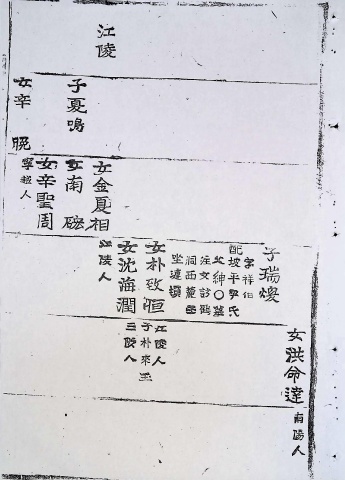 江陵
子夏鳴
女辛 脕
寧越人
女金夏相
女南 硡
女辛聖周
子瑞燮
字祥伯
配坡平尹氏
父紳〇墓
注文診鶴
洞西麓
坐連墳
女朴致恒
江陵人
子朴來
女沈海潤
江陵人
三陟人
女洪命達
南陽人